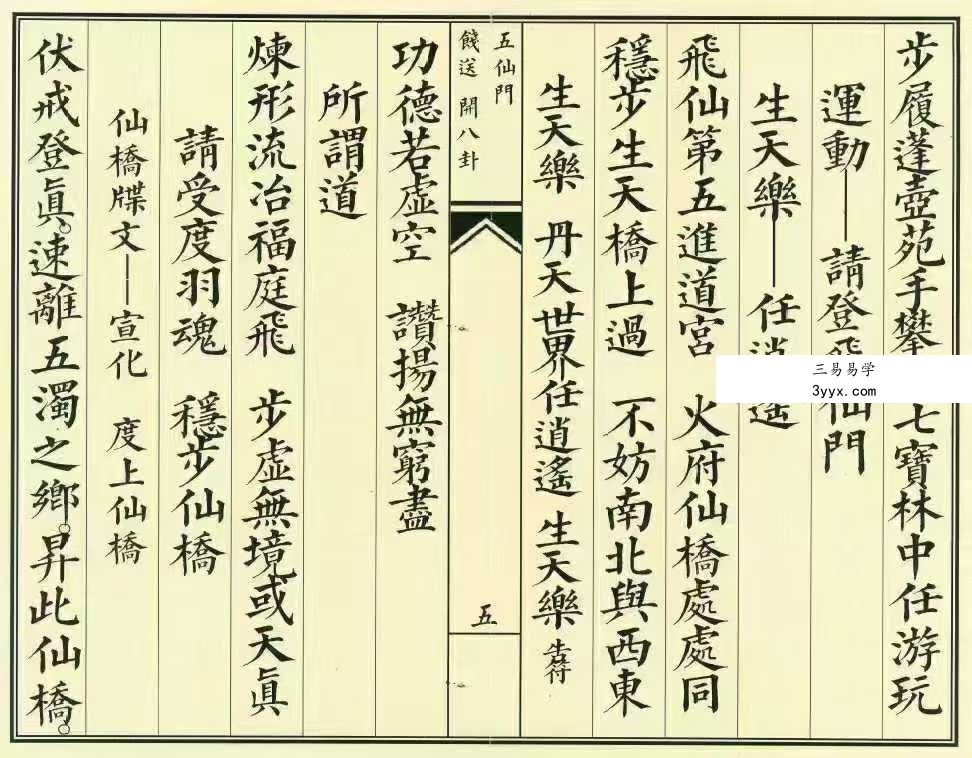 步履蓬壺苑手攀 七寶林中任游玩
運動——請登飛仙門
生天樂——任逍遙
飛仙第五進道宮 火府仙橋處處同
穩步生天橋上過 不妨南北與西東
生天樂 丹天世界任逍遙 生天樂
五仙門
餞送 開八卦
五
功德若虛空 讚揚無窮盡
所謂道
煉形流冶福庭飛 步虛無境或天眞
請受度羽魂 穩步仙橋
仙橋牒文——宣化 度上仙橋
伏戒登眞。速離五濁之鄉。昇此仙橋。
三易易学
3yyx.com